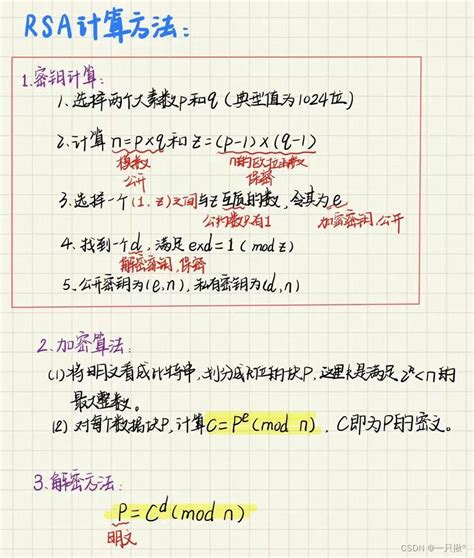 RSA计算方法:
1.密钥计算:
1.选择两个大素数p和q(典型值为1024位)
2.计算n=p×q和z=(p-1)×(q-1)
模数 n的欧拉函数
公开 保密
3.选择一个(1,z)之间与z互质的数,令其为e
公约数只有1 加密密钥,公开
4.找到一个d,满足exd=1(mod z)
解密密钥,保密
5.公开密钥为(e,n),私有密钥为(d,n)
2.加密算法:
(1)将明文看成比特串,划分成k位的块P,这里k是满足2ᵏ<n的
最大整数。
(2)对每个数据块P,计算C=Pᵉ(mod n),C即为P的密文。
3.解密方法:
P=Cᵈ(mod n)
明文